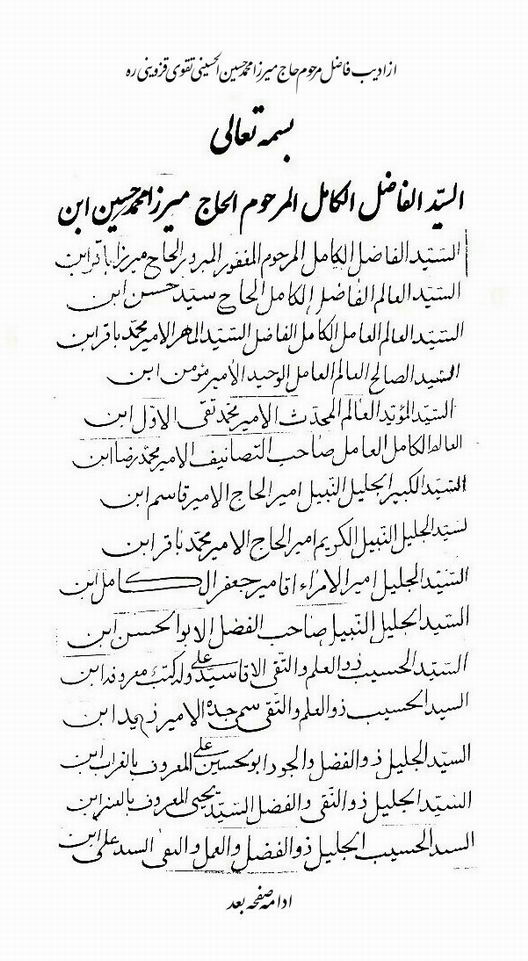 از ادیب فاضل مرحوم حاج میرزا محمد حسین الحسینی تقوی قزوینی ره
بسمه تعالی
السیّد الفاضل الکامل المرحوم الحاج میرزا محمد حسین ابن
السیّد الفاضل الکامل المرحوم المغفور المبرور الحاج میرزا باقر ابن
السیّد العالم الفاضل الکامل الحاج سیّد حسن ابن
السیّد العالم العامل الکامل الفاضل السیّد الماهر الامیر محمّد باقر ابن
السید الصالح العالم العامل الوحید الامیر مؤمن ابن
السیّد المؤید العالم المحدّث الامیر محمّد تقی الاوّل ابن
العالم الکامل العامل صاحب التصانیف الامیر محمّد رضا ابن
السیّد الکبیر الجلیل النّبیل امیر الحاج الامیر قاسم ابن
السیّد الجلیل النّبیل الکریم امیر الحاج الامیر محمّد باقر ابن
السّیّد الجلیل امیر الامراء اقا میر جعفر ال کامل ابن
السّید الجلیل النّبیل صاحب الفضل الابوالحسن ابن
السیّد الحسیب ذو العلم والتّقی الاقا سیّد علی وله کتب معروفه ابن
السید الحسیب ذوالعلم والتّقی سمی جدّه الامیر زید ابن
السیّد الجلیل ذوالفضل والجود ابوالحسین علی المعروف بالغراب ابن
السّیّد الجلیل ذوالتّقی والفضل السّیّد یحیی المعروف بالعنبر ابن
السید الحسیب الجلیل ذوالفضل والعمل والتقی السید علی ابن
ادامه صفحه بعد